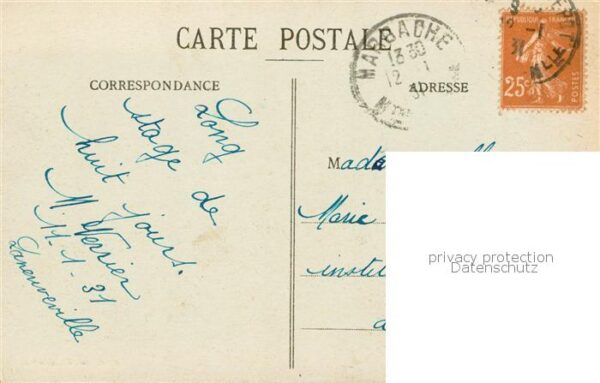 CARTE POSTALE
CORRESPONDANCE
ADRESSE
MARBACHE
13 30
12 1
31
REPUBLIQUE FRANCAISE
25c
POSTES
Long
stage de
huit jours.
M Verrier
11-1-31
Laneuveville
Mada
Marie
instit
a
privacy protection
Datenschutz